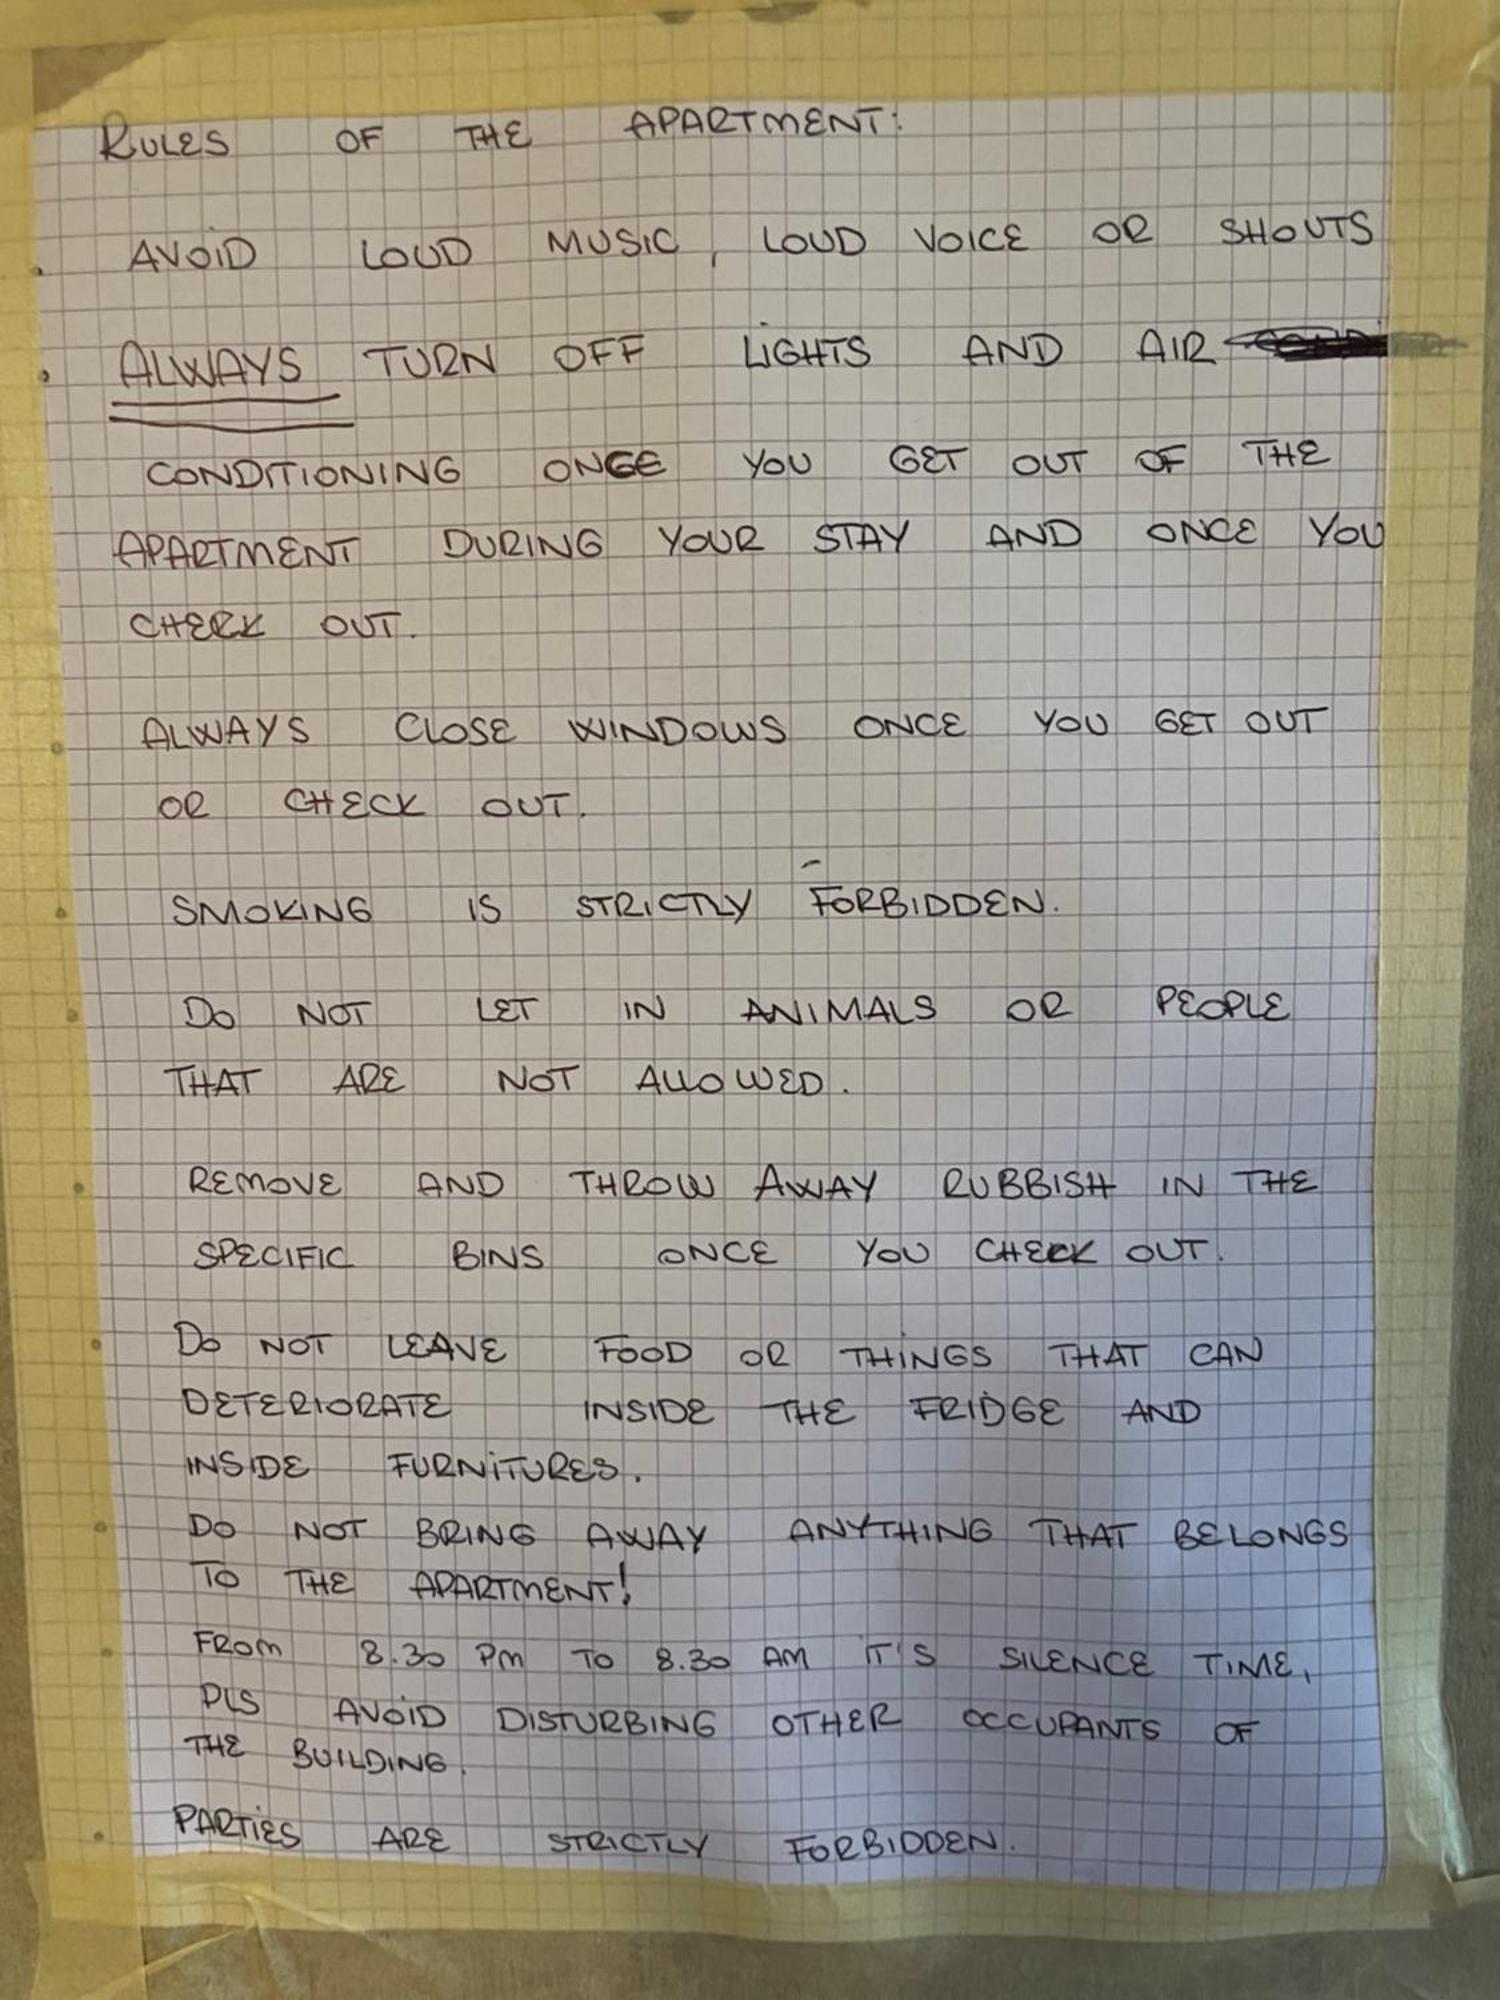 RULES OF THE APARTMENT:
. AVOID LOUD MUSIC, LOUD VOICE OR SHOUTS
. ALWAYS TURN OFF LIGHTS AND AIR
CONDITIONING ONCE YOU GET OUT OF THE
APARTMENT DURING YOUR STAY AND ONCE YOU
CHECK OUT.
. ALWAYS CLOSE WINDOWS ONCE YOU GET OUT
OR CHECK OUT.
. SMOKING IS STRICTLY FORBIDDEN.
. DO NOT LET IN ANIMALS OR PEOPLE
THAT ARE NOT ALLOWED.
. REMOVE AND THROW AWAY RUBBISH IN THE
SPECIFIC BINS ONCE YOU CHECK OUT.
. DO NOT LEAVE FOOD OR THINGS THAT CAN
DETERIORATE INSIDE THE FRIDGE AND
INSIDE FURNITURES.
. DO NOT BRING AWAY ANYTHING THAT BELONGS
TO THE APARTMENT!
. FROM 8.30 PM TO 8.30 AM IT'S SILENCE TIME,
PLS AVOID DISTURBING OTHER OCCUPANTS OF
THE BUILDING.
. PARTIES ARE STRICTLY FORBIDDEN.